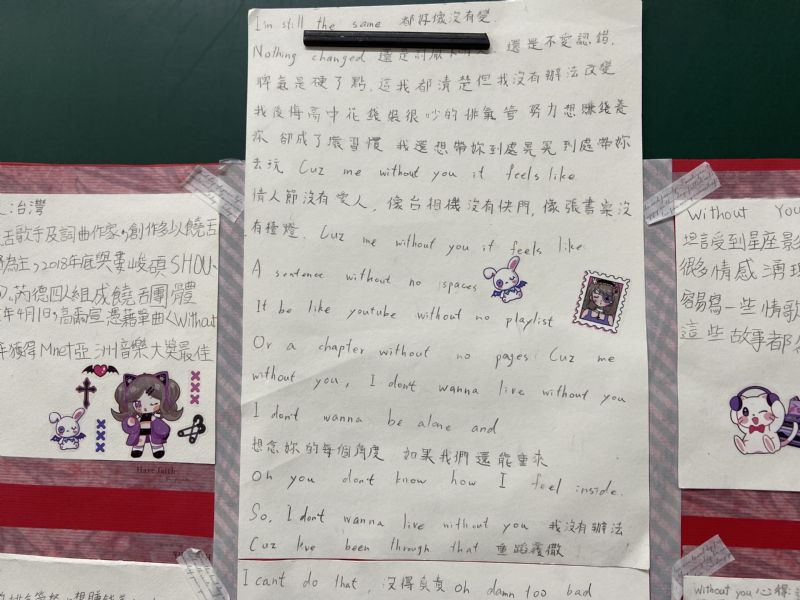 :台灣
舌歌手及詞曲作家,創作多以饒舌
為主,2018年底與婁峻碩SHOU、
芮德四人組成饒舌團體
年4月1日,高爾宣憑藉單曲《Without
獲得Mnet亞洲音樂大獎最佳
Have faith
I'm still the same 都好像沒有變
Nothing changed 還是討厭 還是不愛認錯,
脾氣是硬了點,這我都清楚但我沒有辦法改變
我後悔高中花錢裝很吵的排氣管 努力想賺錢養
妳 卻成了壞習慣 我還想帶妳到處晃晃到處帶妳
去玩 Cuz me without you it feels like
情人節沒有愛人,像台相機沒有快門,像張書案沒
有檯燈. Cuz me without you it feels like
A sentence without no spaces
It be like youtube without no playlist
Or a chapter without no pages Cuz me
without you, I don't wanna live without you
I don't wanna be alone and
想念妳的每個角度 如果我們還能重來
Oh you don't know how I feel inside.
So, I don't wanna live without you 我沒有辦法
Cuz I've been through that 重蹈覆轍
I can't do that, 沒得負責 oh damn too bad
Without You
坦言受到星座影
很多情感湧現
容易寫一些情歌
這些故事都
without you 心得: